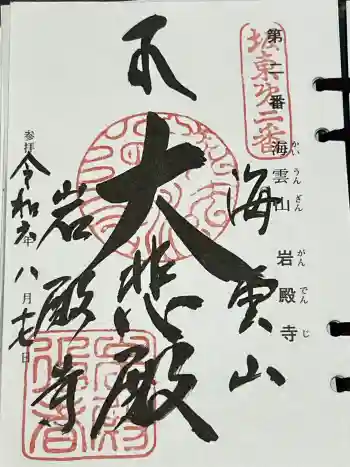 第二番
海雲山
岩殿寺
かいうんざん
がんでんじ
坂東第二番
海雲山
大悲殿
岩殿寺
参拝
令和六年八月七日